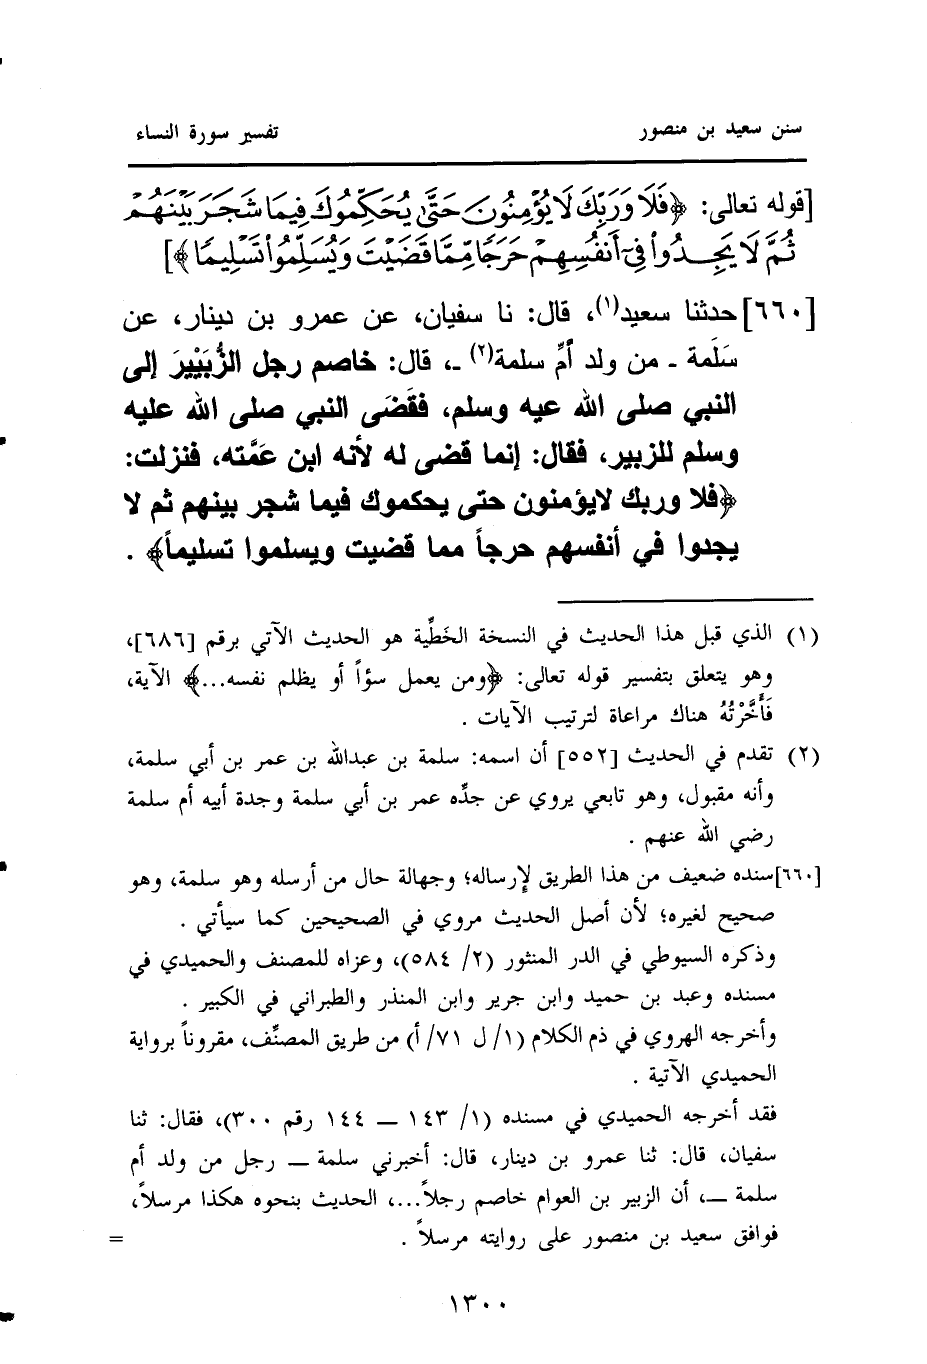 سنن سعيد بن منصور
تفسير سورة النساء
[قوله تعالى: ﴿فَلَا وَرَبِّكَ لَا يُؤْمِنُونَ حَتَّىٰ يُحَكِّمُوكَ فِيمَا شَجَرَ بَيْنَهُمْ
ثُمَّ لَا يَجِدُوا۟ فِىٓ أَنفُسِهِمْ حَرَجًا مِّمَّا قَضَيْتَ وَيُسَلِّمُوا۟ تَسْلِيمًا﴾]
[٦٦٠] حدثنا سعيد(١)، قال: نا سفيان، عن عمرو بن دينار، عن
سَلَمة ـ من ولد أمِّ سلمة(٢) ـ، قال: خاصم رجل الزُّبَيْيرَ إلى
النبي صلى الله عيه وسلم، فقَضَى النبي صلى الله عليه
وسلم للزبير، فقال: إنما قضى له لأنه ابن عَمَّته، فنزلت:
﴿فلا وربك لايؤمنون حتى يحكموك فيما شجر بينهم ثم لا
يجدوا في أنفسهم حرجاً مما قضيت ويسلموا تسليماً﴾ .
(١) الذي قبل هذا الحديث في النسخة الخَطِّية هو الحديث الآتي برقم [٦٨٦]،
وهو يتعلق بتفسير قوله تعالى: ﴿ومن يعمل سؤاً أو يظلم نفسه...﴾ الآية،
فَأَخَّرْتُهُ هناك مراعاة لترتيب الآيات .
(٢) تقدم في الحديث [٥٥٢] أن اسمه: سلمة بن عبدالله بن عمر بن أبي سلمة،
وأنه مقبول، وهو تابعي يروي عن جدِّه عمر بن أبي سلمة وجدة أبيه أم سلمة
رضي الله عنهم .
[٦٦٠] سنده ضعيف من هذا الطريق لإرساله؛ وجهالة حال من أرسله وهو سلمة، وهو
صحيح لغيره؛ لأن أصل الحديث مروي في الصحيحين كما سيأتي .
وذكره السيوطي في الدر المنثور (٢/ ٥٨٤)، وعزاه للمصنف والحميدي في
مسنده وعبد بن حميد وابن جرير وابن المنذر والطبراني في الكبير .
وأخرجه الهروي في ذم الكلام (١/ ل ٧١/ أ) من طريق المصنِّف، مقروناً برواية
الحميدي الآتية .
فقد أخرجه الحميدي في مسنده (١/ ١٤٣ – ١٤٤ رقم ٣٠٠)، فقال: ثنا
سفيان، قال: ثنا عمرو بن دينار، قال: أخبرني سلمة – رجل من ولد أم
سلمة –، أن الزبير بن العوام خاصم رجلاً...، الحديث بنحوه هكذا مرسلاً،
فوافق سعيد بن منصور على روايته مرسلاً .
=
١٣٠٠